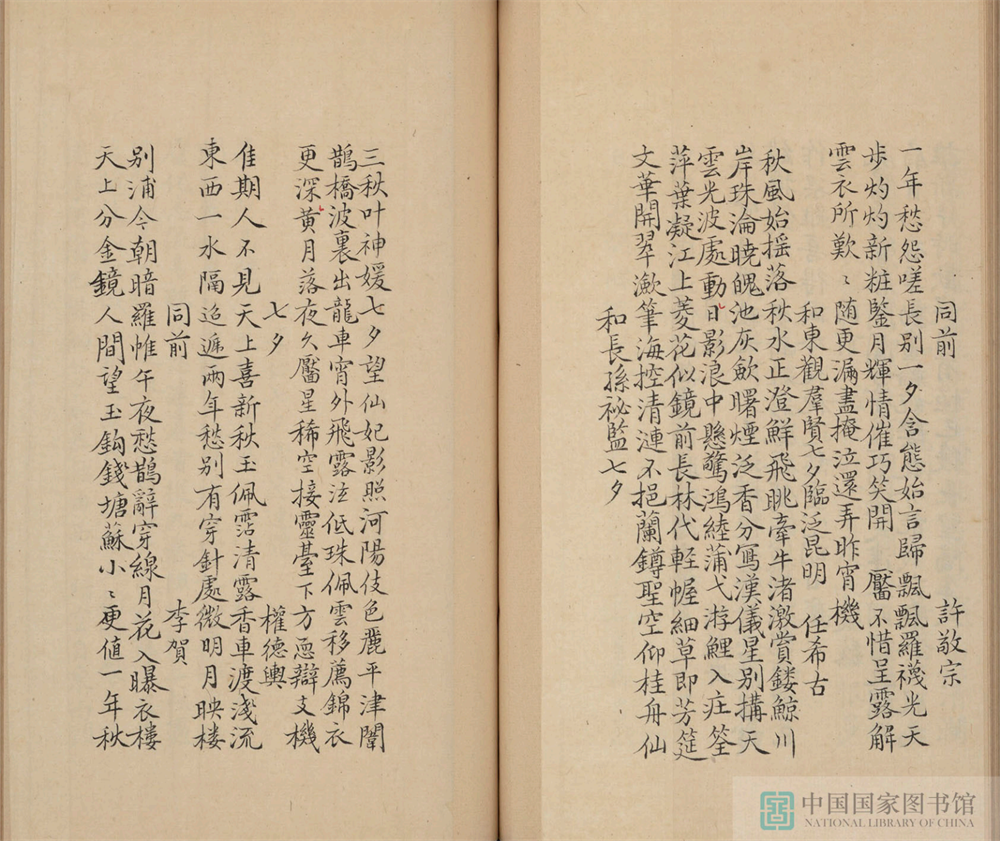 同前 許敬宗
一年愁怨嗟長別一夕含態始言歸飄飄羅襪光天
步灼灼新粧鑒月輝情催巧笑開靨不惜呈露解
雲衣所歎〻随更漏盡掩泣還弄昨宵機
和東觀羣賢七夕臨泛昆明 任希古
秋風始摇落秋水正澄鮮飛眺牽牛渚激賞鏤鯨川
岸珠淪曉魄池灰歛曙煙泛香分寫漢儀星別搆天
雲光波處動日影浪中懸驚鴻絓蒲弋游鯉入庄筌
萍葉凝江上菱花似鏡前長林代軽幄細草即芳筵
文華開翠潋筆海控清漣不挹蘭鐏聖空仰桂舟仙
和長孫祕監七夕
三秋叶神媛七夕望仙妃影照河陽伎色麗平津闈
鵲橋波裏出龍車宵外飛露泫低珠佩雲移薦錦衣
更深黄月落夜久靨星稀空接靈䑓下方恧辯支機
七夕 權德輿
佳期人不見天上喜新秋玉佩霑清露香車渡淺流
東西一水隔迢遞兩年愁别有穿針處微明月映楼
同前 李賀
别浦今朝暗羅帷午夜愁鵲辭穿線月花入曝衣樓
天上分金鏡人間望玉鈎錢塘蘇小〻更值一年秋
中国国家图书馆
NATIONAL LIBRARY OF CHINA